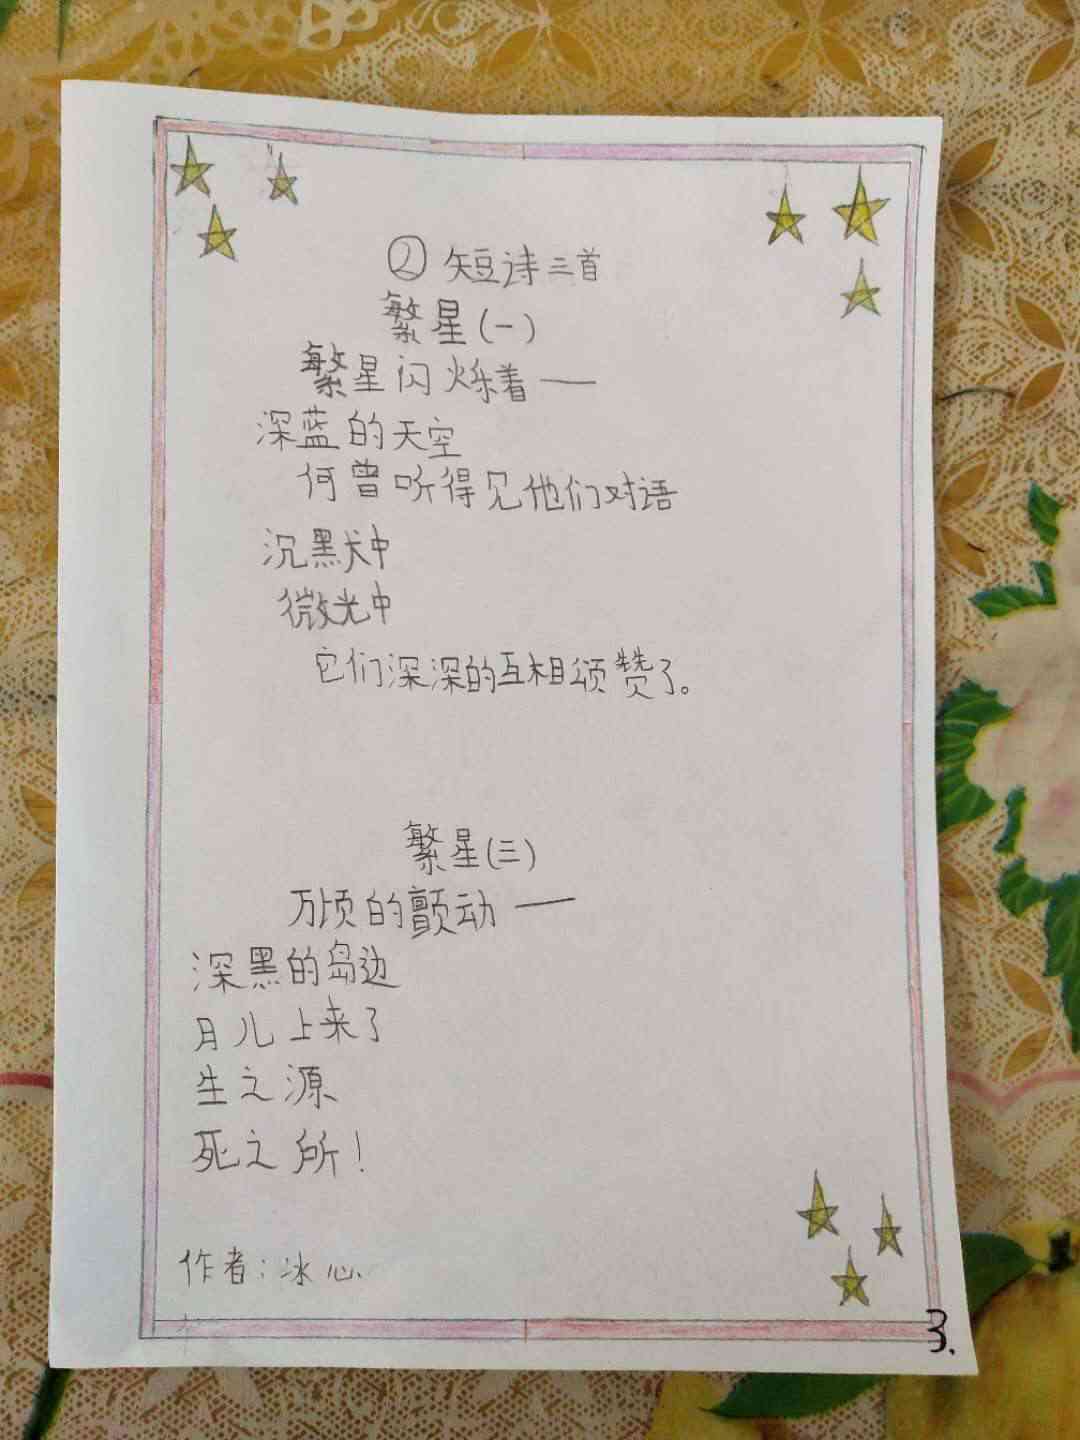 ②短诗三首
繁星(一)
繁星闪烁着——
深蓝的天空
何曾听得见他们对语
沉默中
微光中
它们深深的互相颂赞了。
繁星(三)
万顷的颤动——
深黑的岛边
月儿上来了
生之源
死之所！
作者：冰心
3.